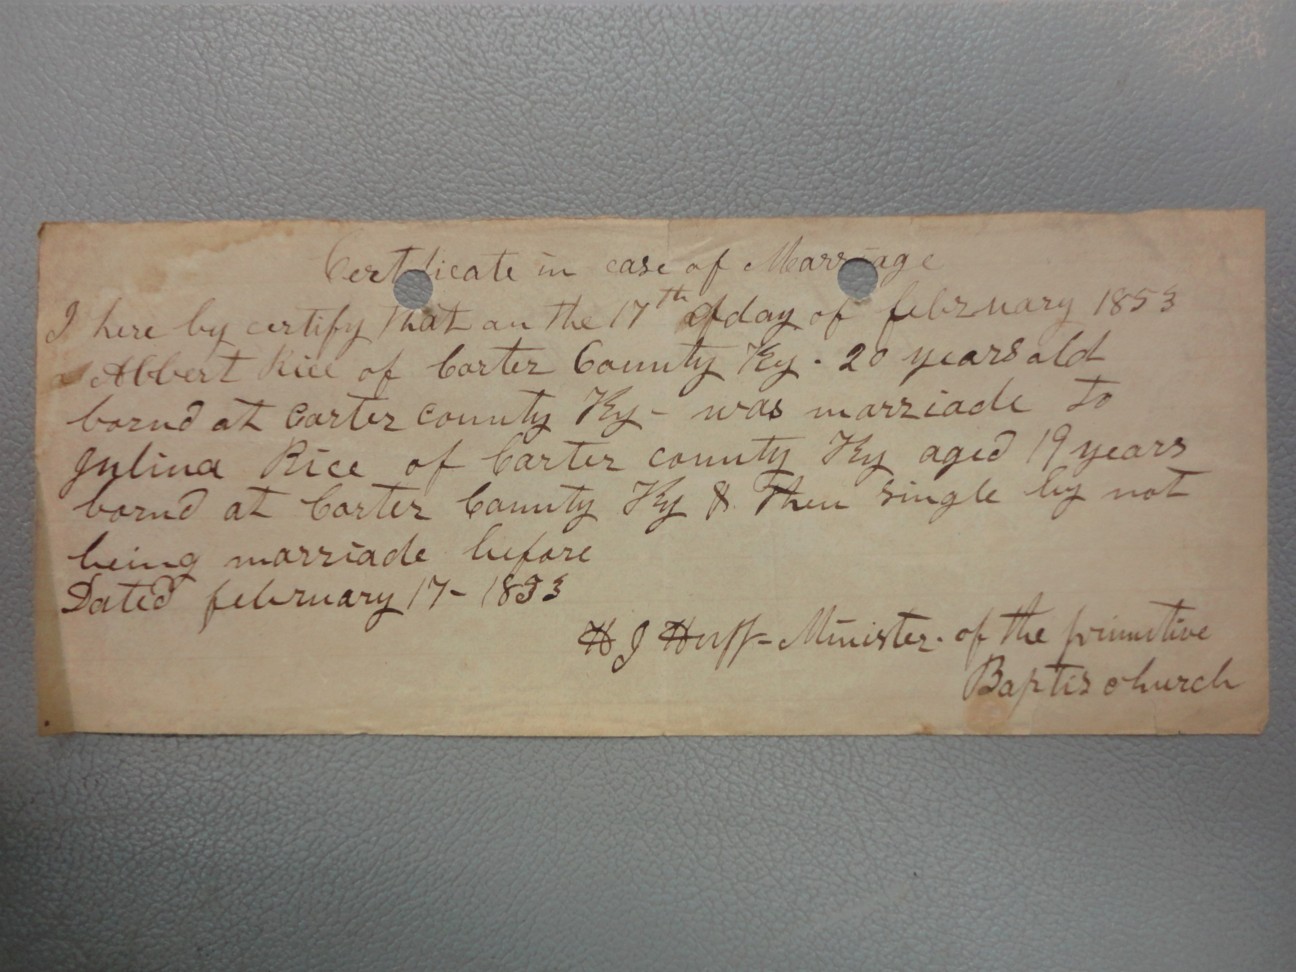 Certificate in case of Marriage
I here by certify that an the 17th day of february 1853
Albert Rice of Carter County Ky. 20 years old
bornd at Carter county Ky - was marriade to
Julina Rice of Carter county Ky aged 19 years
bornd at Carter County Ky & then single by not
being marriade before
Dated february 17 - 1853
H J Huff - Minister. of the primitive
Baptis church